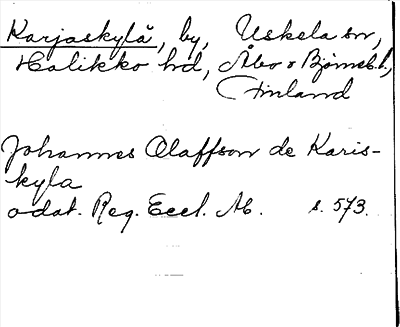 Karjaskylä, by, Uskela sn,
Halikko hd, Åbo o Bjørneb. l.,
Finland
Johannes Olaffson de Karis-
kyla
odat. Reg. Eccl. Ab. s. 573.